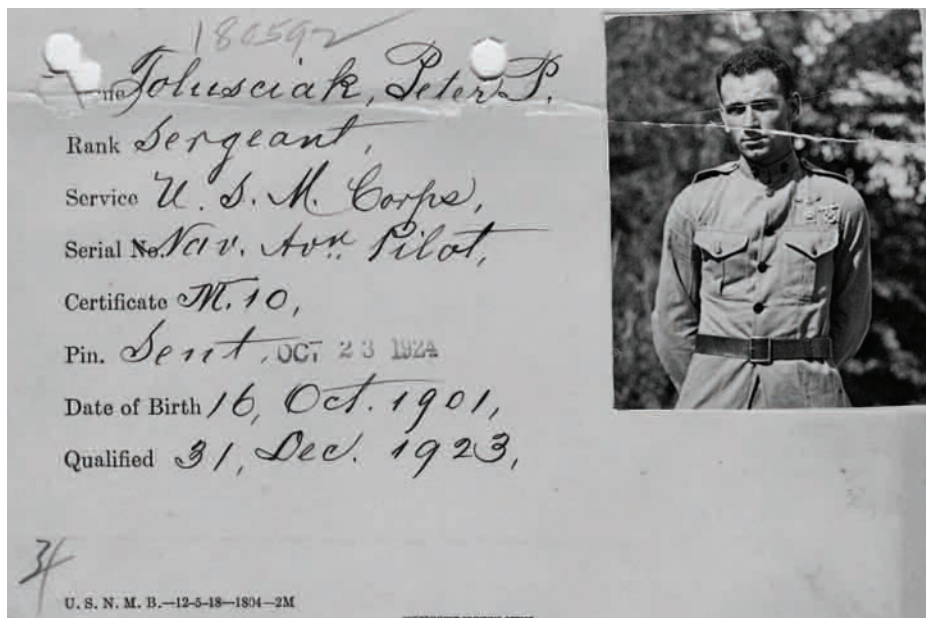 180592
Tolusciak, Peter P.
Rank Sergeant,
Service U. S. M. Corps,
Serial No. Nav. Avn. Pilot,
Certificate M. 10,
Pin. Sent, OCT 23 1924
Date of Birth 16, Oct. 1901,
Qualified 31, Dec. 1923,
34
U. S. N. M. B.—12-5-18—1804—2M